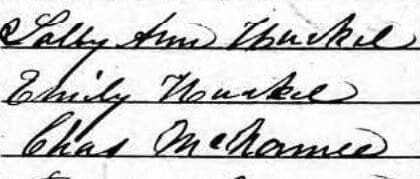 Sally Ann Huskel
Emily Huskel
Chas McNamee